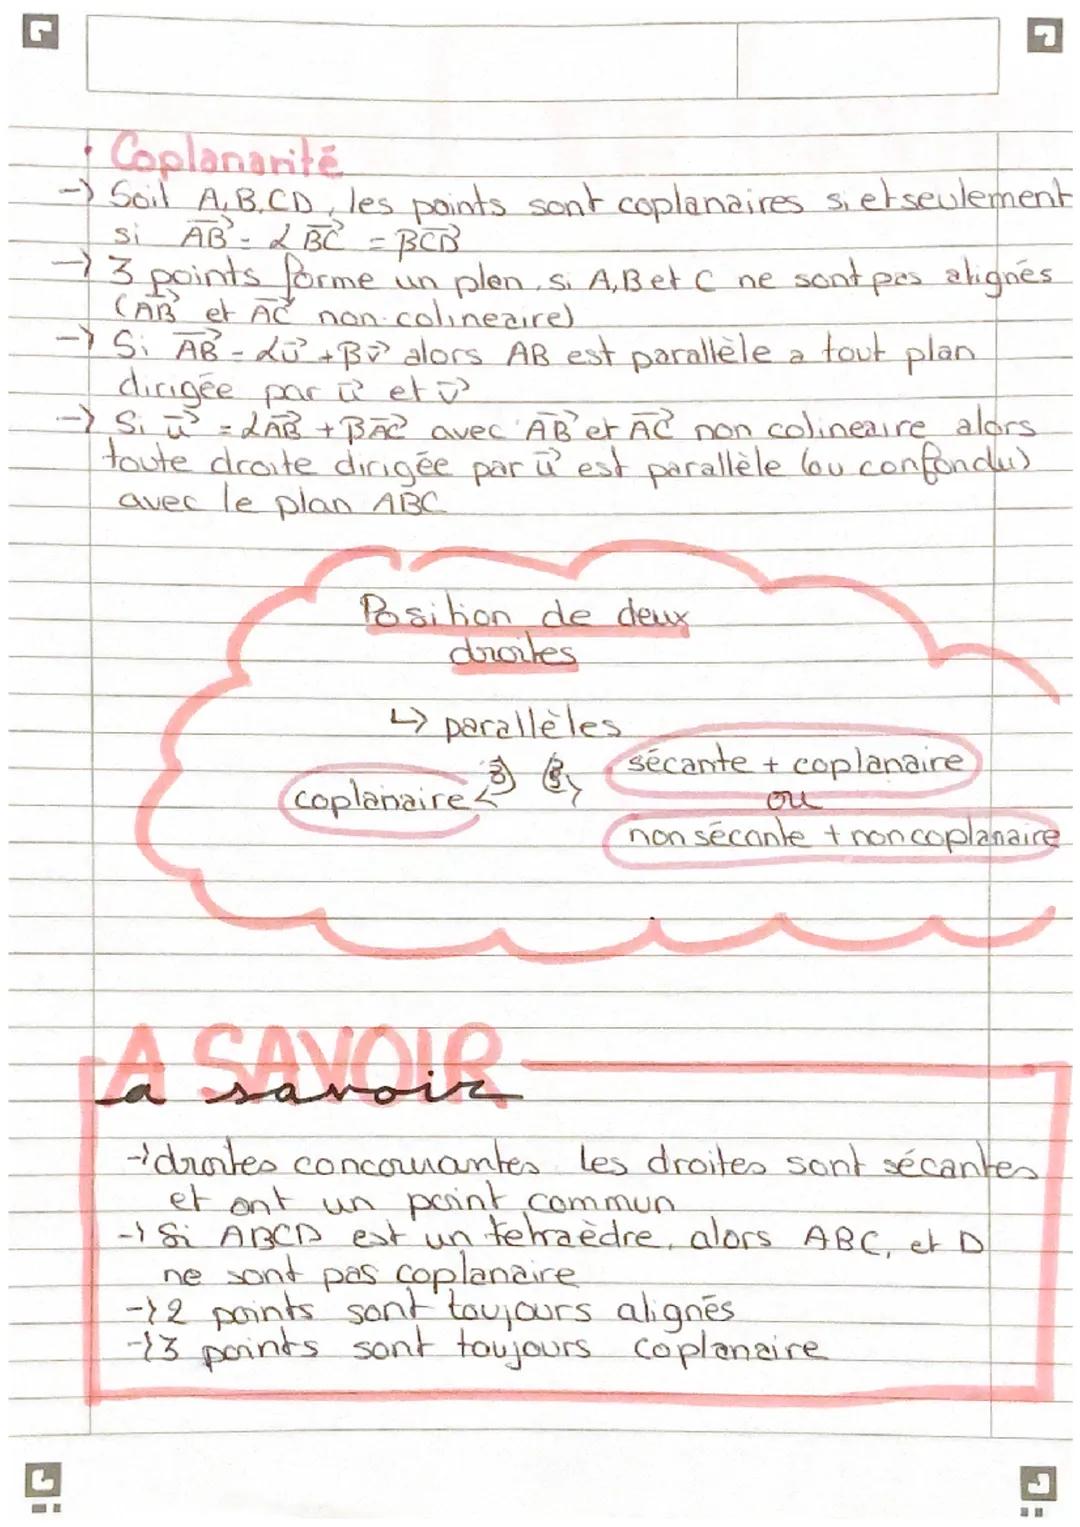 • Coplanarité
-> Soit A,B,CD, les points sont coplanaires si et seulement
si AB = αBC = βCD
-> 3 points forme un plan, si A,B et C ne sont pas alignés
(AB et AC non-colineaire)
-> Si AB = αu + βv alors AB est parallèle a tout plan
dirigée par u et v
-> Si u = αAB + βAC avec AB et AC non colineaire alors
toute droite dirigée par u est parallèle (ou confondu)
avec le plan ABC
Position de deux
droites
↳ parallèles
sécante + coplanaire
coplanaire
ou
non sécante + non coplanaire
A SAVOIR
a savoir
-> droites concourantes les droites sont sécantes
et ont un point commun
-> Si ABCD est un tetraèdre, alors ABC, et D
ne sont pas coplanaire
-> 2 points sont toujours alignés
-> 3 points sont toujours coplanaire